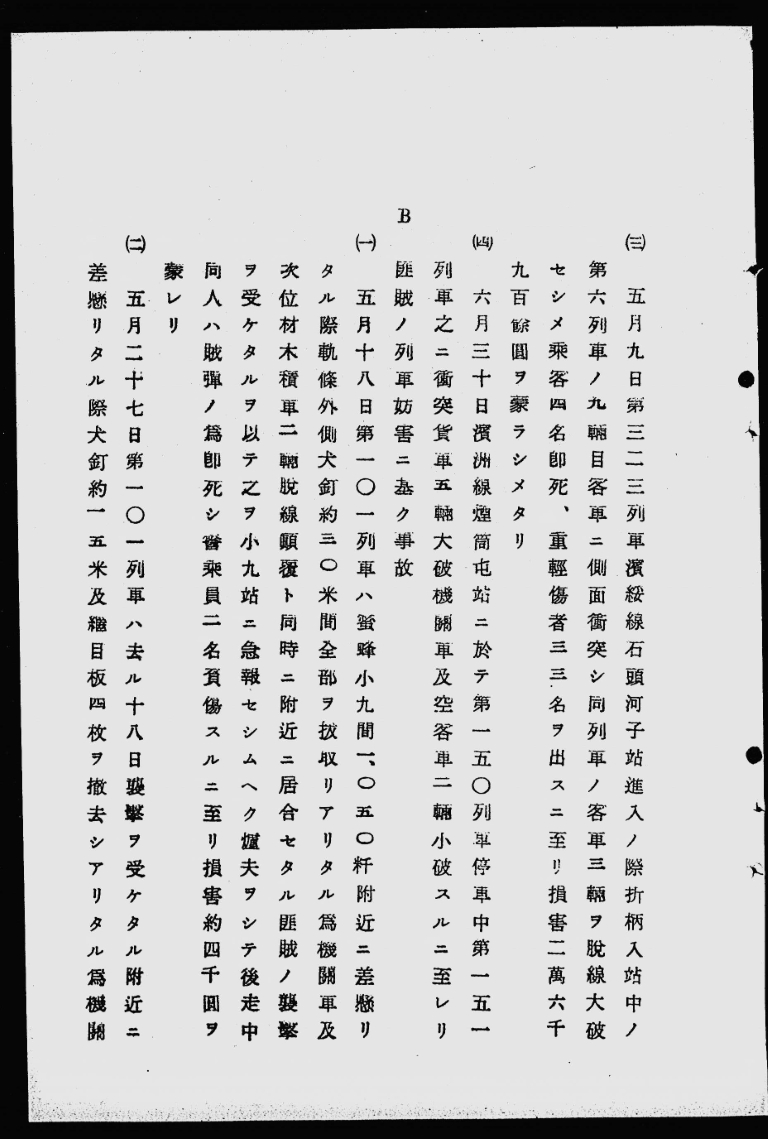 ㈢　五月九日第三二三列車濱綏線石頭河子站進入ノ際折柄入站中ノ
第六列車ノ九輛目客車ニ側面衝突シ同列車ノ客車三輛ヲ脫線大破
セシメ乘客四名卽死、重輕傷者三三名ヲ出スニ至リ損害二萬六千
九百餘圓ヲ蒙ラシメタリ
㈣　六月三十日濱洲線煙筒屯站ニ於テ第一五〇列車停車中第一五一
列車之ニ衝突貨車五輛大破機關車及空客車二輛小破スルニ至レリ
B　匪賊ノ列車妨害ニ基ク事故
㈠　五月十八日第一〇一列車ハ蜜蜂小九間一、〇五〇粁附近ニ差懸リ
タル際軌條外側犬釘約三〇米間全部ヲ拔取リアリタル爲機關車及
次位材木積車二輛脫線顚覆ト同時ニ附近ニ居合セタル匪賊ノ襲擊
ヲ受ケタルヲ以テ之ヲ小九站ニ急報セシムヘク爐夫ヲシテ後走中
同人ハ賊彈ノ爲卽死シ警乘員二名負傷スルニ至リ損害約四千圓ヲ
蒙レリ
㈡　五月二十七日第一〇一列車ハ去ル十八日襲擊ヲ受ケタル附近ニ
差懸リタル際犬釘約一五米及繼目板四枚ヲ撤去シアリタル爲機關